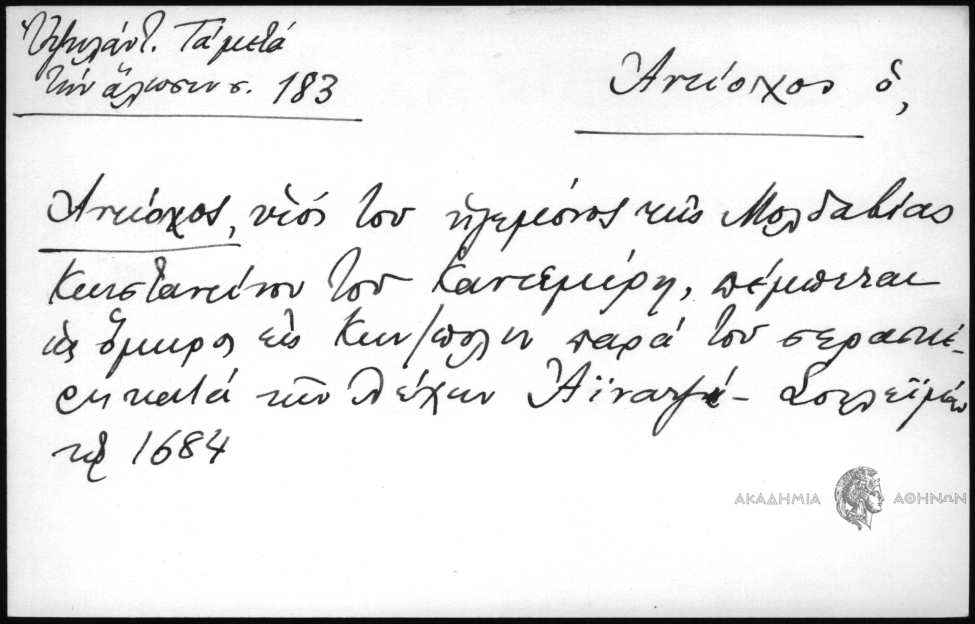 Ὑψηλάντ. Τά μετά
τήν ἅλωσιν σ. 183
Ἀντίοχος ὁ,
Ἀντίοχος, υἱός του ἡγεμόνος τῆς Μολδαβίας
Κωνσταντίνου του Καντεμίρη, πέμπεται
ὡς ὅμηρος εἰς Κων/πολιν παρά του σερασκέ-
ρη κατά τῶν Λέχων Ἀϊνατζή - Σουλεϊμάν
τῷ 1684
ΑΚΑΔΗΜΙΑ ΑΘΗΝΩΝ